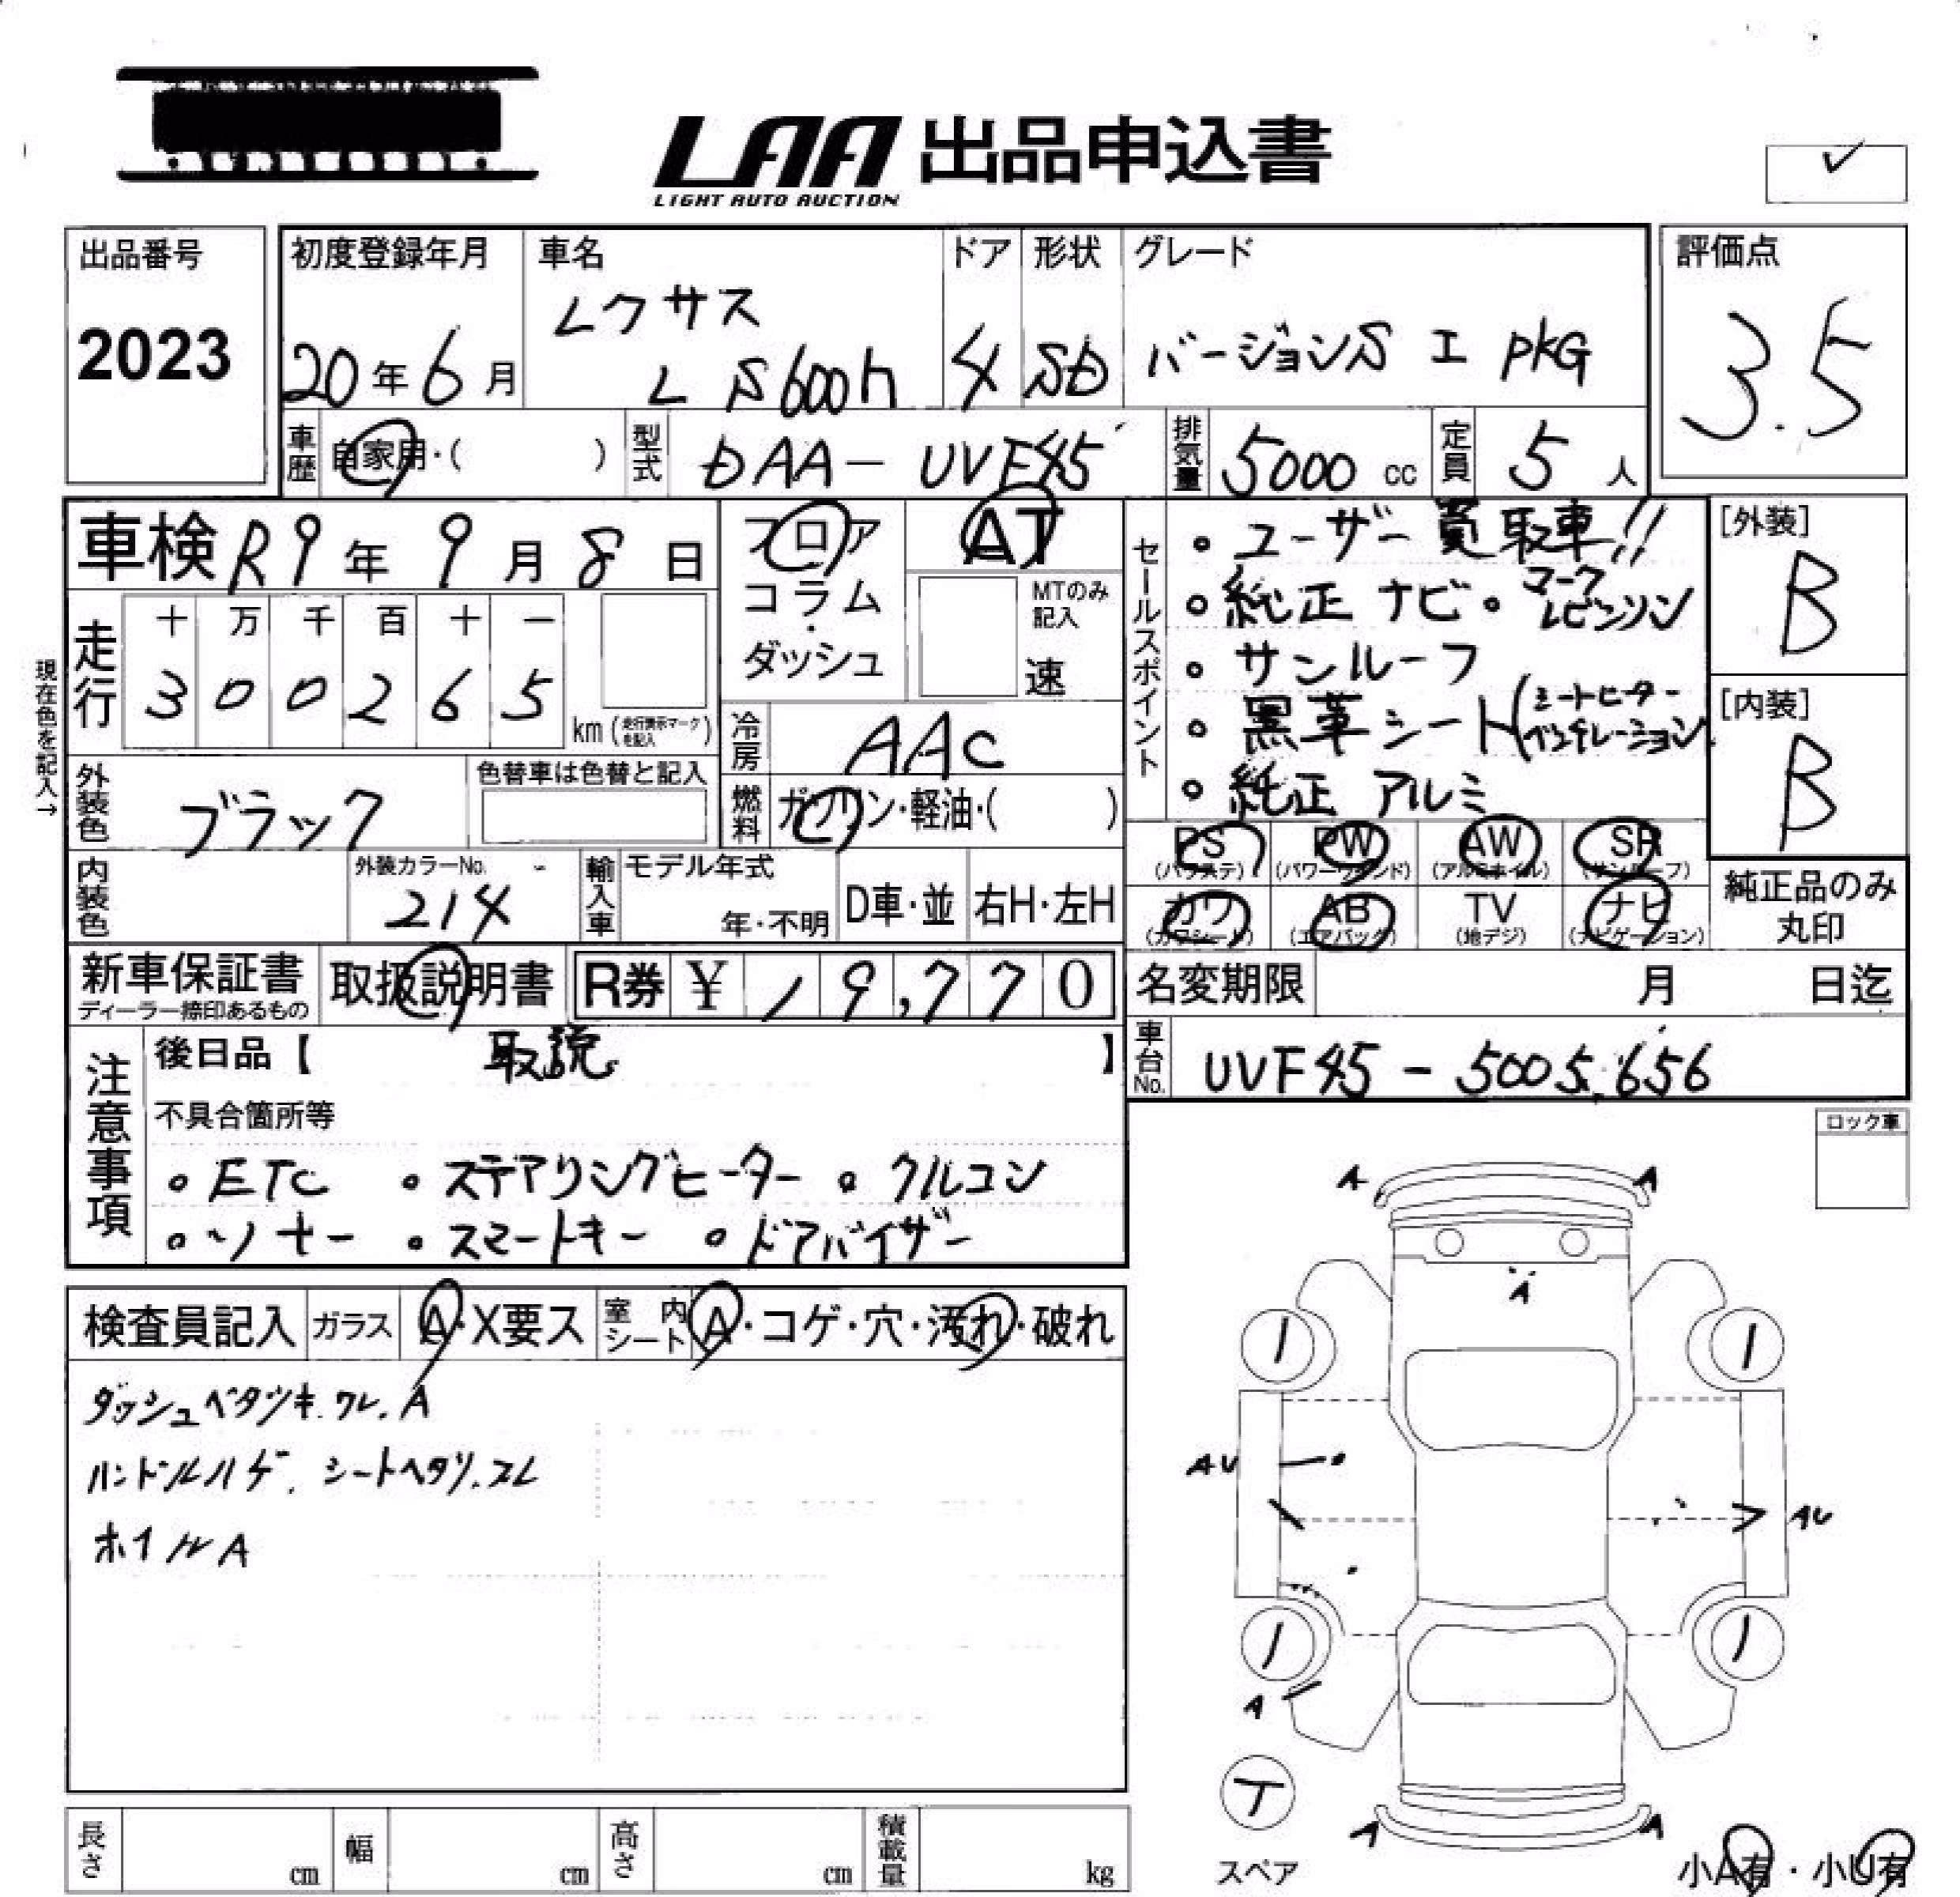 LAA 出品申込書
LIGHT AUTO AUCTION
✓
出品番号
2023
初度登録年月
20年6月
車名
レクサス
LS600h
ドア
4
形状
SD
グレード
バージョンS I PKG
評価点
3.5
車歴
自家用・( )
型式
DAA-UVF45
排気量
5000 cc
定員
5 人
車検 R9年 9月 8日
フロア
コラム
・
ダッシュ
AT
MTのみ
記入
速
走行
十 万 千 百 十 一
3 0 0 2 6 5
km (走行表示マークを記入)
現在色を記入→
冷房
AAC
外装色
ブラック
色替車は色替と記入
燃料
ガソリン・軽油・( )
内装色
外装カラーNo.
214
輸入車
モデル年式
年・不明
D車・並
右H・左H
セールスポイント
・ユーザー買取車!!
・純正ナビ・マークレビンソン
・サンルーフ
・黒革シート(シートヒーター
ベンチレーション
・純正アルミ
[外装]
B
[内装]
B
PS
(パワステ)
PW
(パワーウインド)
AW
(アルミホイル)
SR
(サンルーフ)
カワ
(カワシート)
AB
(エアバック)
TV
(地デジ)
ナビ
(ナビゲーション)
純正品のみ
丸印
新車保証書
ディーラー捺印あるもの
取扱説明書
R券 ¥ 19,770
名変期限 月 日迄
車台No.
UVF45-5005656
注意事項
後日品【 取説 】
不具合箇所等
・ETC ・ステアリングヒーター ・クルコン
・ソナー ・スマートキー ・ドアバイザー
ロック車
検査員記入
ガラス
A・X要ス
室内シート
A・コゲ・穴・汚れ・破れ
ダッシュベタツキ.ワレ.A
ハンドルハゲ.シートヘタリ.スレ
ホイルA
A A
A
AU
AU
A
T
スペア
A A
小A有・小U有
長さ cm
幅 cm
高さ cm
積載量 kg